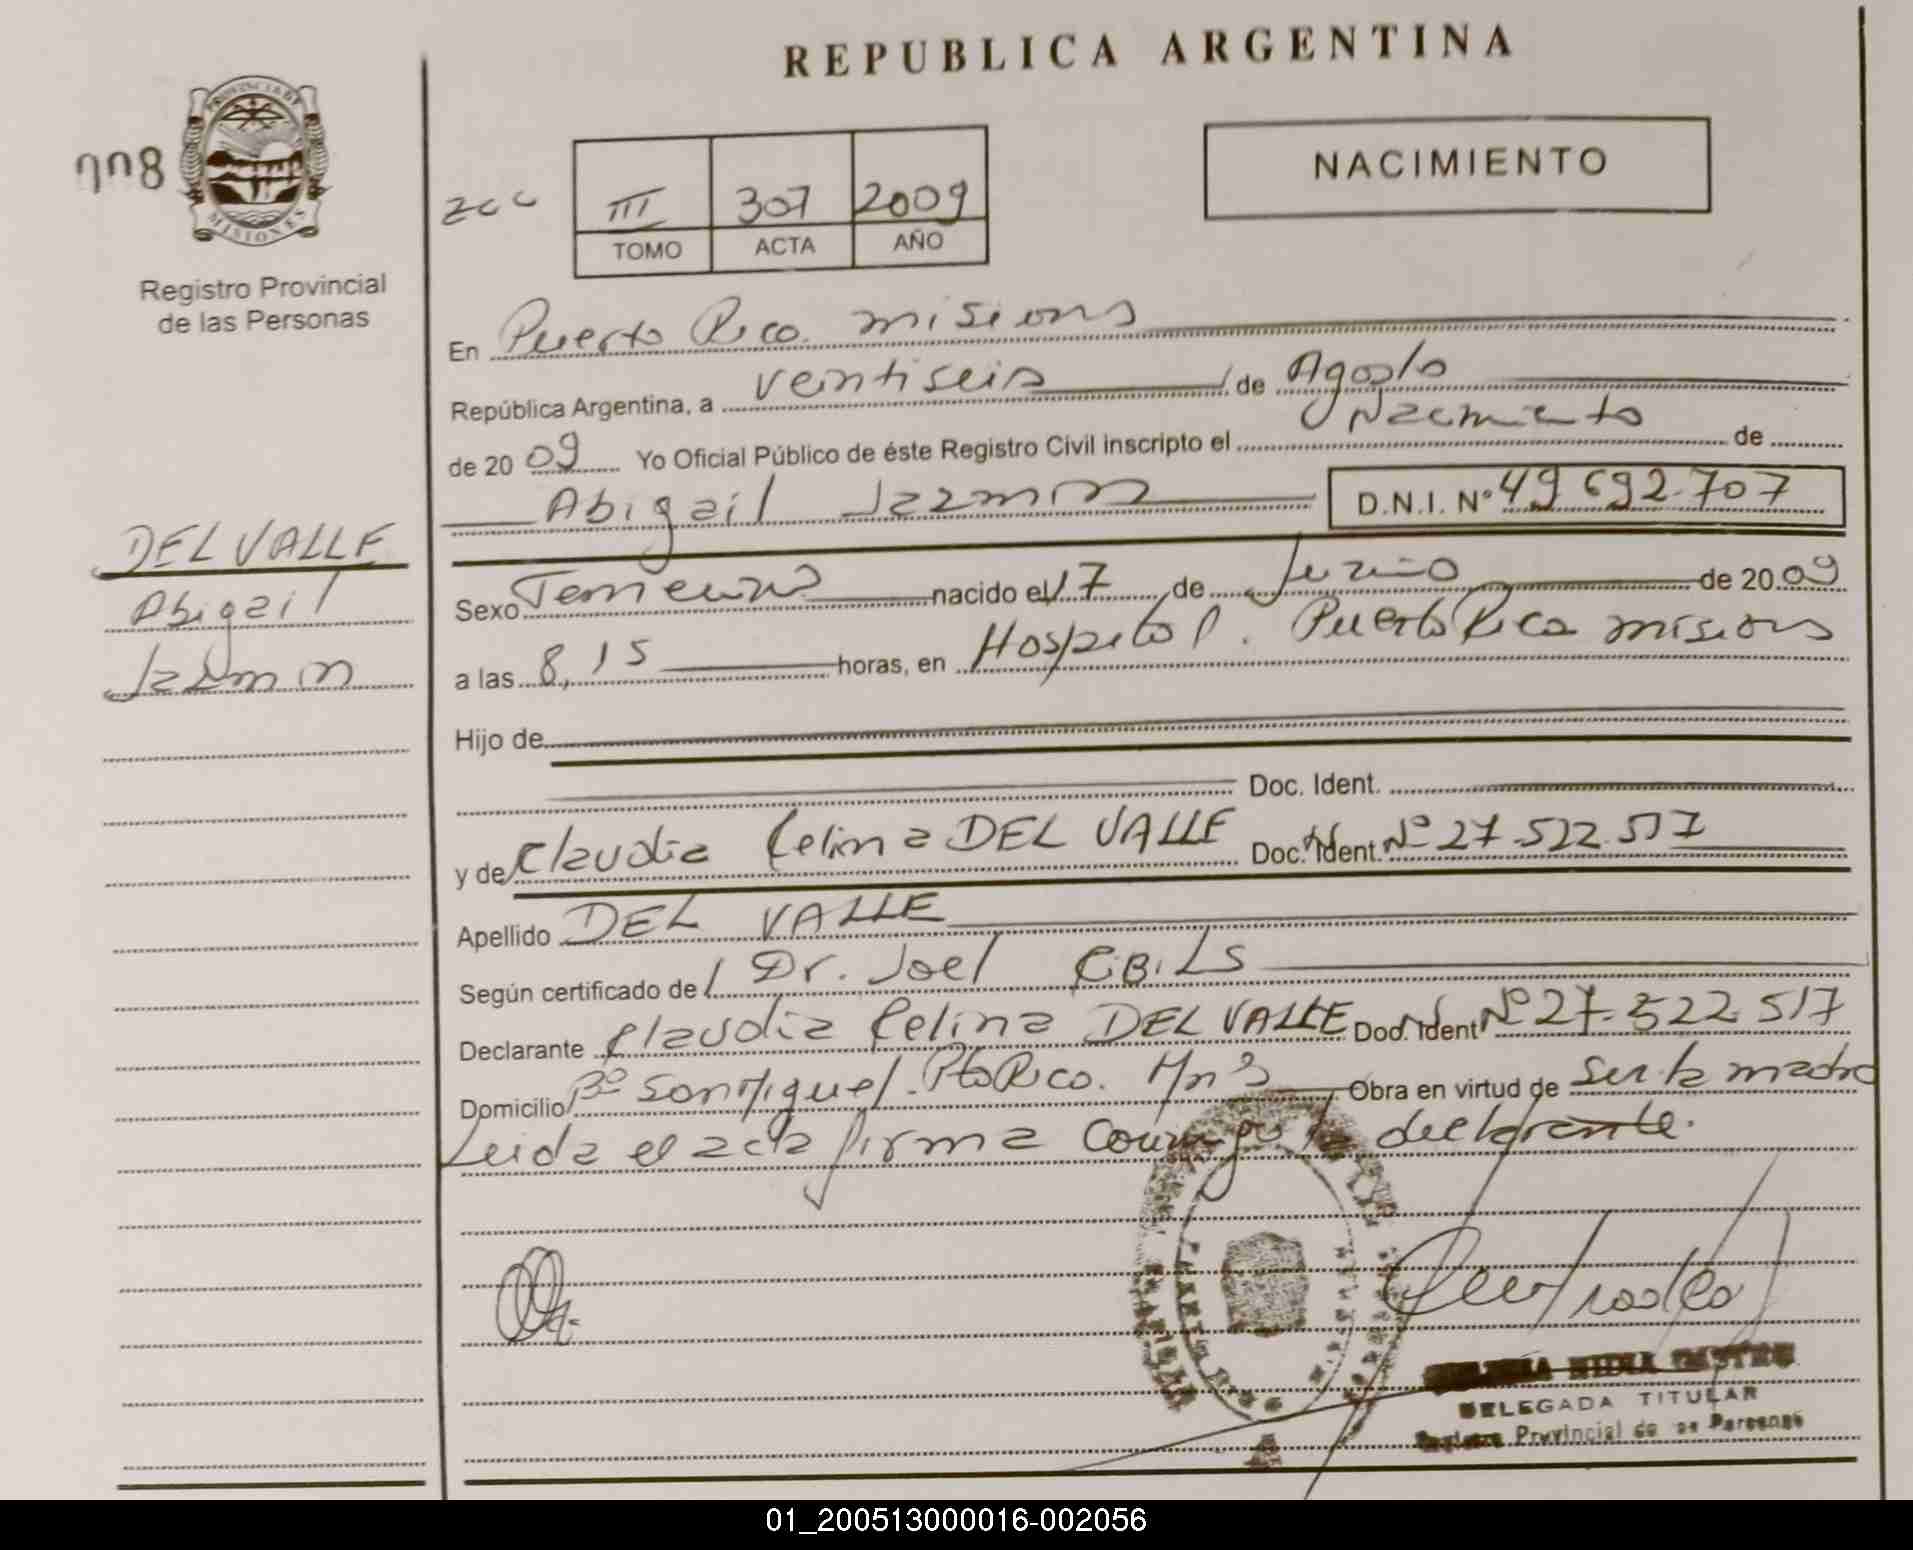 REPUBLICA ARGENTINA
PROVINCIA DE
MISIONES
008
Registro Provincial
de las Personas
III 307 2009
TOMO ACTA AÑO
NACIMIENTO
En Puerto Rico misions
República Argentina, a veintiseis de Agosto
de 2009 Yo Oficial Público de éste Registro Civil inscripto el Nacimiento de
Abigail Jazmin D.N.I. Nº 49 692.707
DEL VALLE
Abigail
Jazmin
Sexo Femenino nacido el 17 de Junio de 2009
a las 8,15 horas, en Hospital. Puerto Rico misions
Hijo de
Doc. Ident.
y de Claudia Celina DEL VALLE Doc. Ident. Nº 27.522.517
Apellido DEL VALLE
Según certificado de Dr. Joel
Declarante Claudia Celina DEL VALLE Doc. Ident Nº 27.522.517
Domicilio Bº San Miguel. Pto Rico. Mns Obra en virtud de ser la madre
Leida el acta firma conmigo la declarante.
DELEGADA TITULAR
Registro Provincial de las Personas
01_200513000016-002056